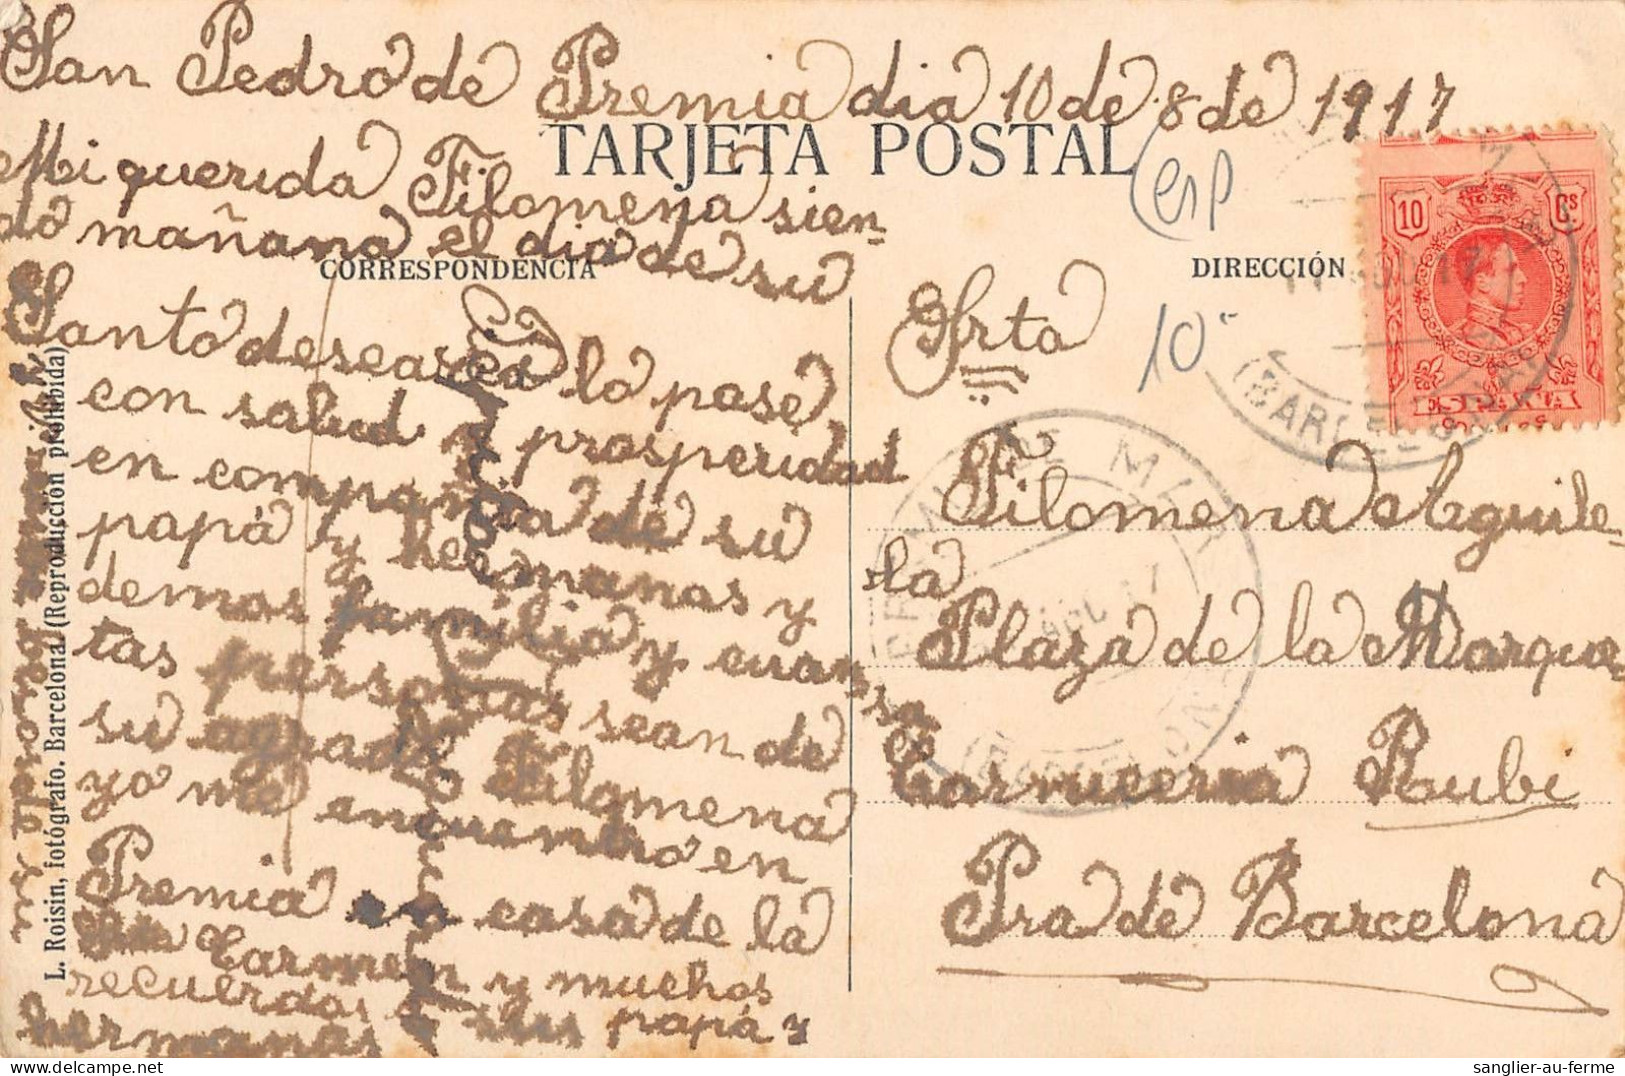 San Pedro de Premia dia 10 de 8 de 1917
TARJETA POSTAL
Mi querida Filomena sien-
do mañana el dia de su
CORRESPONDENCIA
Santo desearea la pase
con salud y prosperidad
en compañia de su
papá y hermanas y
demas familia y cuan
tas personas sean de
su agrado Filomena
yo me encuentro en
Premia en casa de la
Carmen y muchos
recuerdos á sus papá y
hermanas
L. Roisin, fotógrafo. Barcelona. (Reproducción prohibida)
esp
10
DIRECCIÓN
Srta
Filomena Aguile-
la
Plaza de la Marque
sa
Carniceria Rubi
Pra de Barcelona
10 Cs
ESPAÑA
BARCELONA
MAR
AGO 17
BARCELONA
sanglier-au-ferme